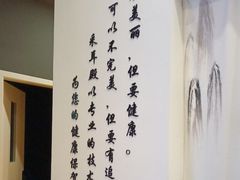 美丽，但要健康。
可以不完美，但要有追
采耳殿以专业的技术
为您的健康保驾